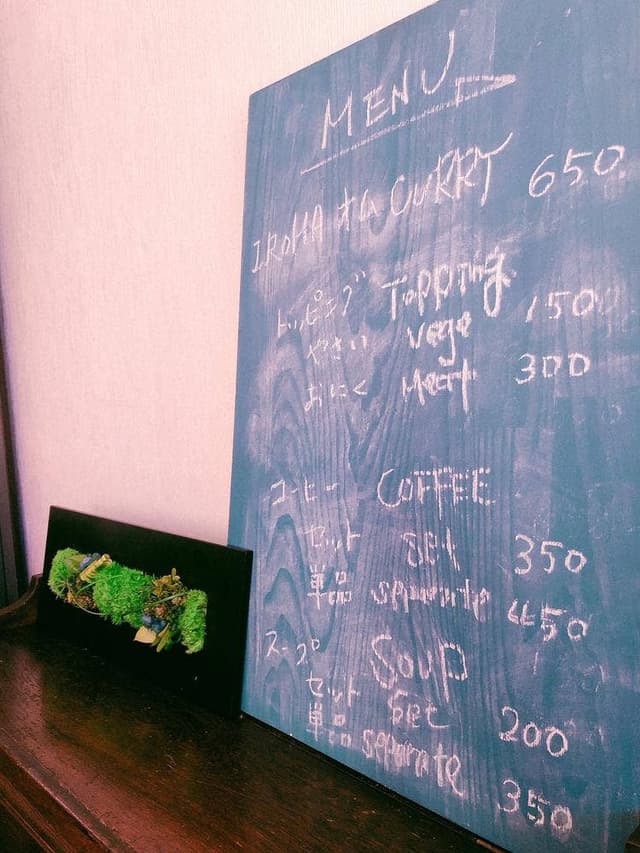 MENU
IROHA オム CURRY 650
トッピング Topping
やさい vege 150
おにく Meat 300
コーヒー COFFEE
セット set 350
単品 separate 450
スープ SOUP
セット Set 200
単品 separate 350